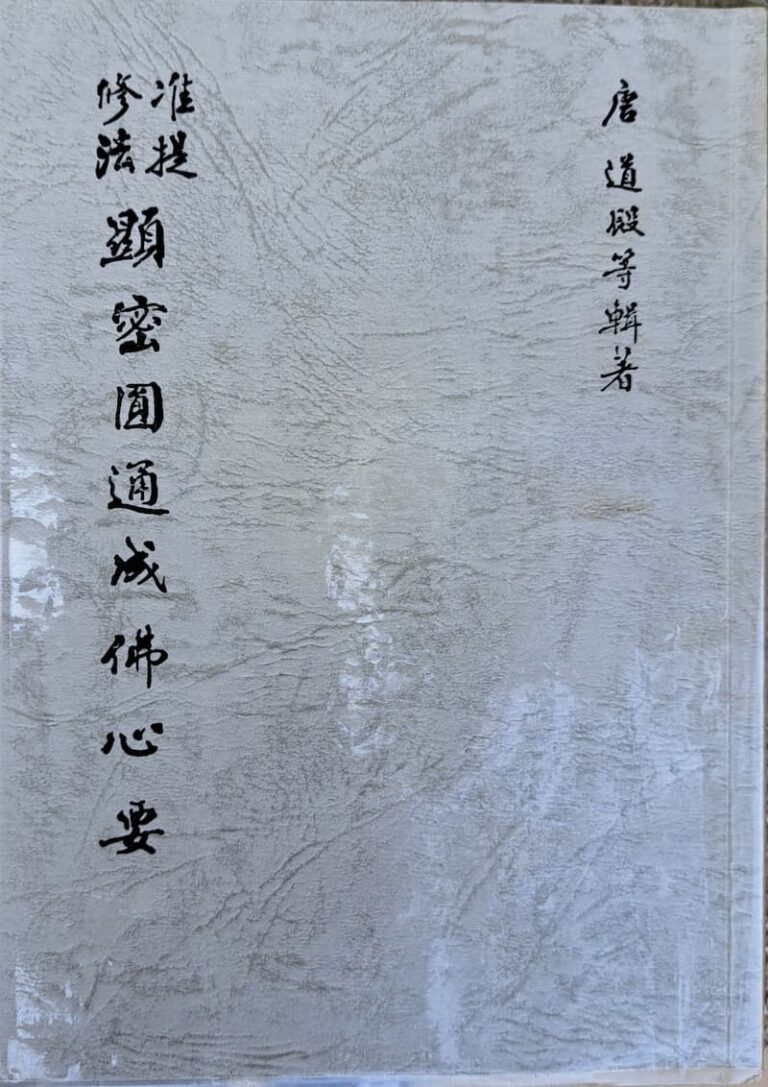 唐道殿等輯著
准提
修法
顯密圓通成佛心要